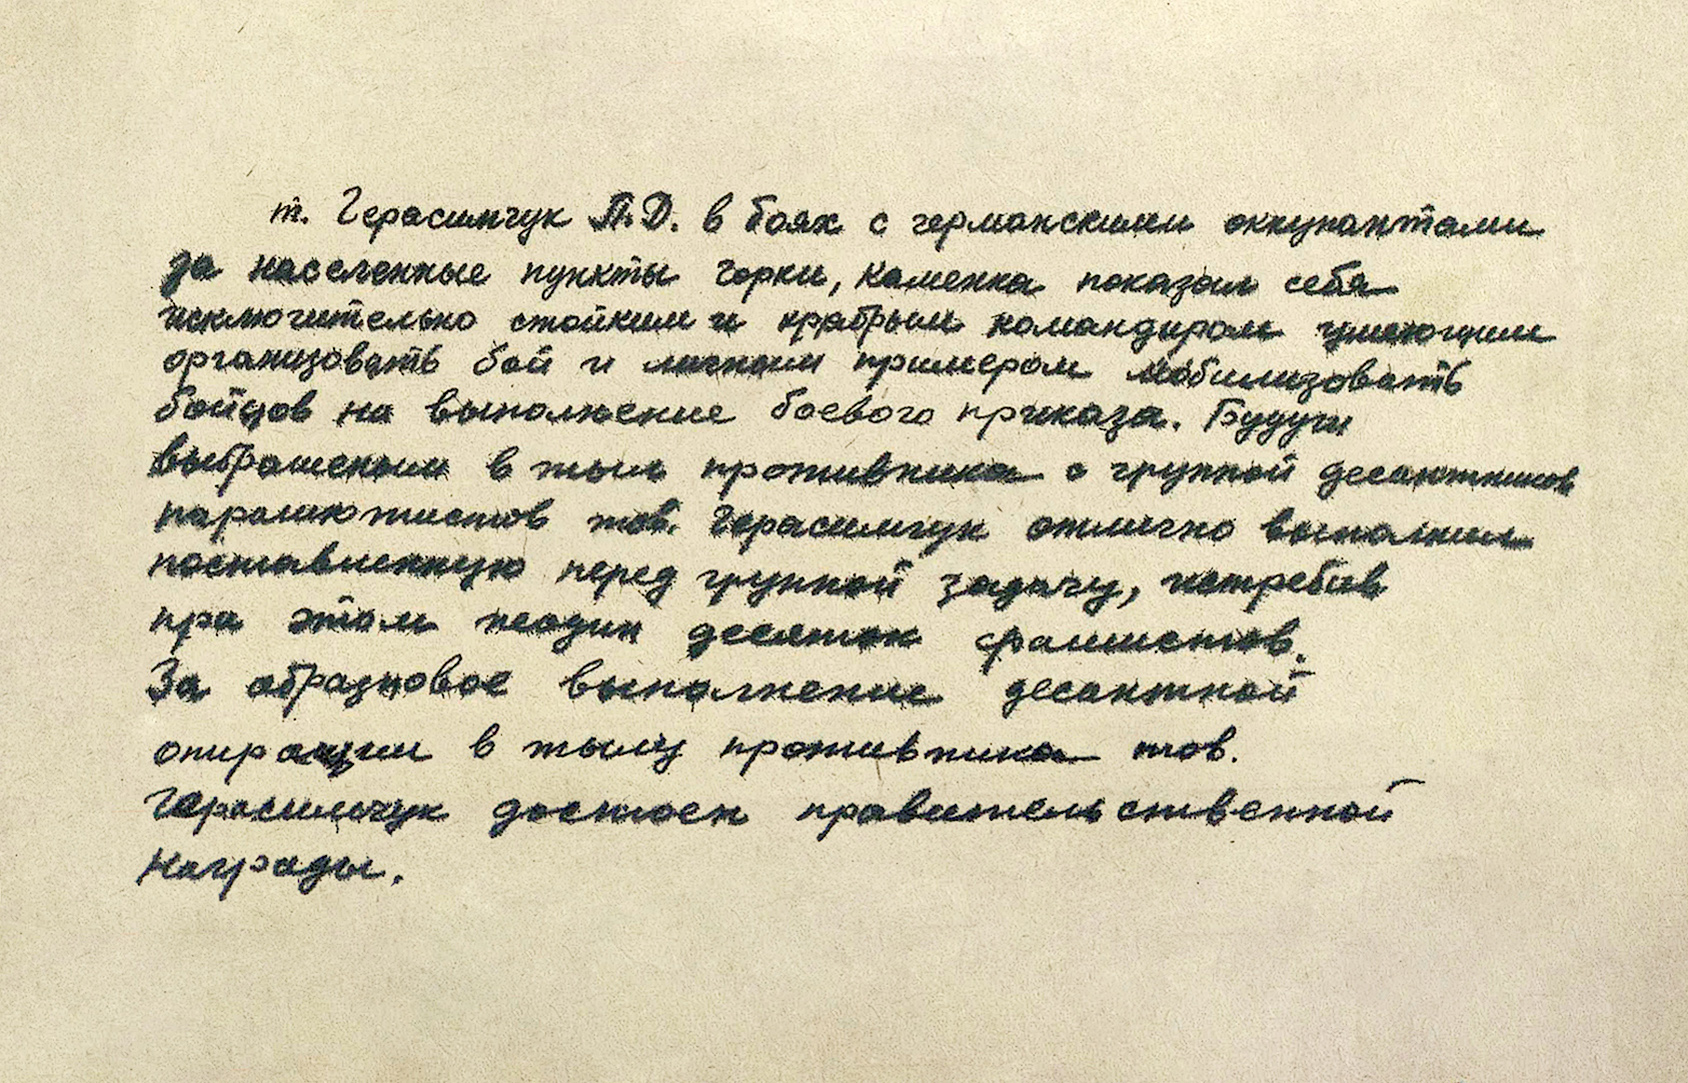 т. Герасимчук П.Д. в боях с германскими оккупантами
за населенные пункты Горки, Каменка показал себя
исключительно стойким и храбрым командиром умеющим
организовать бой и личным примером мобилизовать
бойцов на выполнение боевого приказа. Будучи
выброшеным в тыл противника с группой десантников
парашютистов тов. Герасимчук отлично выполнил
поставленную перед группой задачу, истребив
при этом неодин десяток фашистов.
За образцовое выполнение десантной
опирации в тылу противника тов.
Герасимчук достоен правительственной
награды.